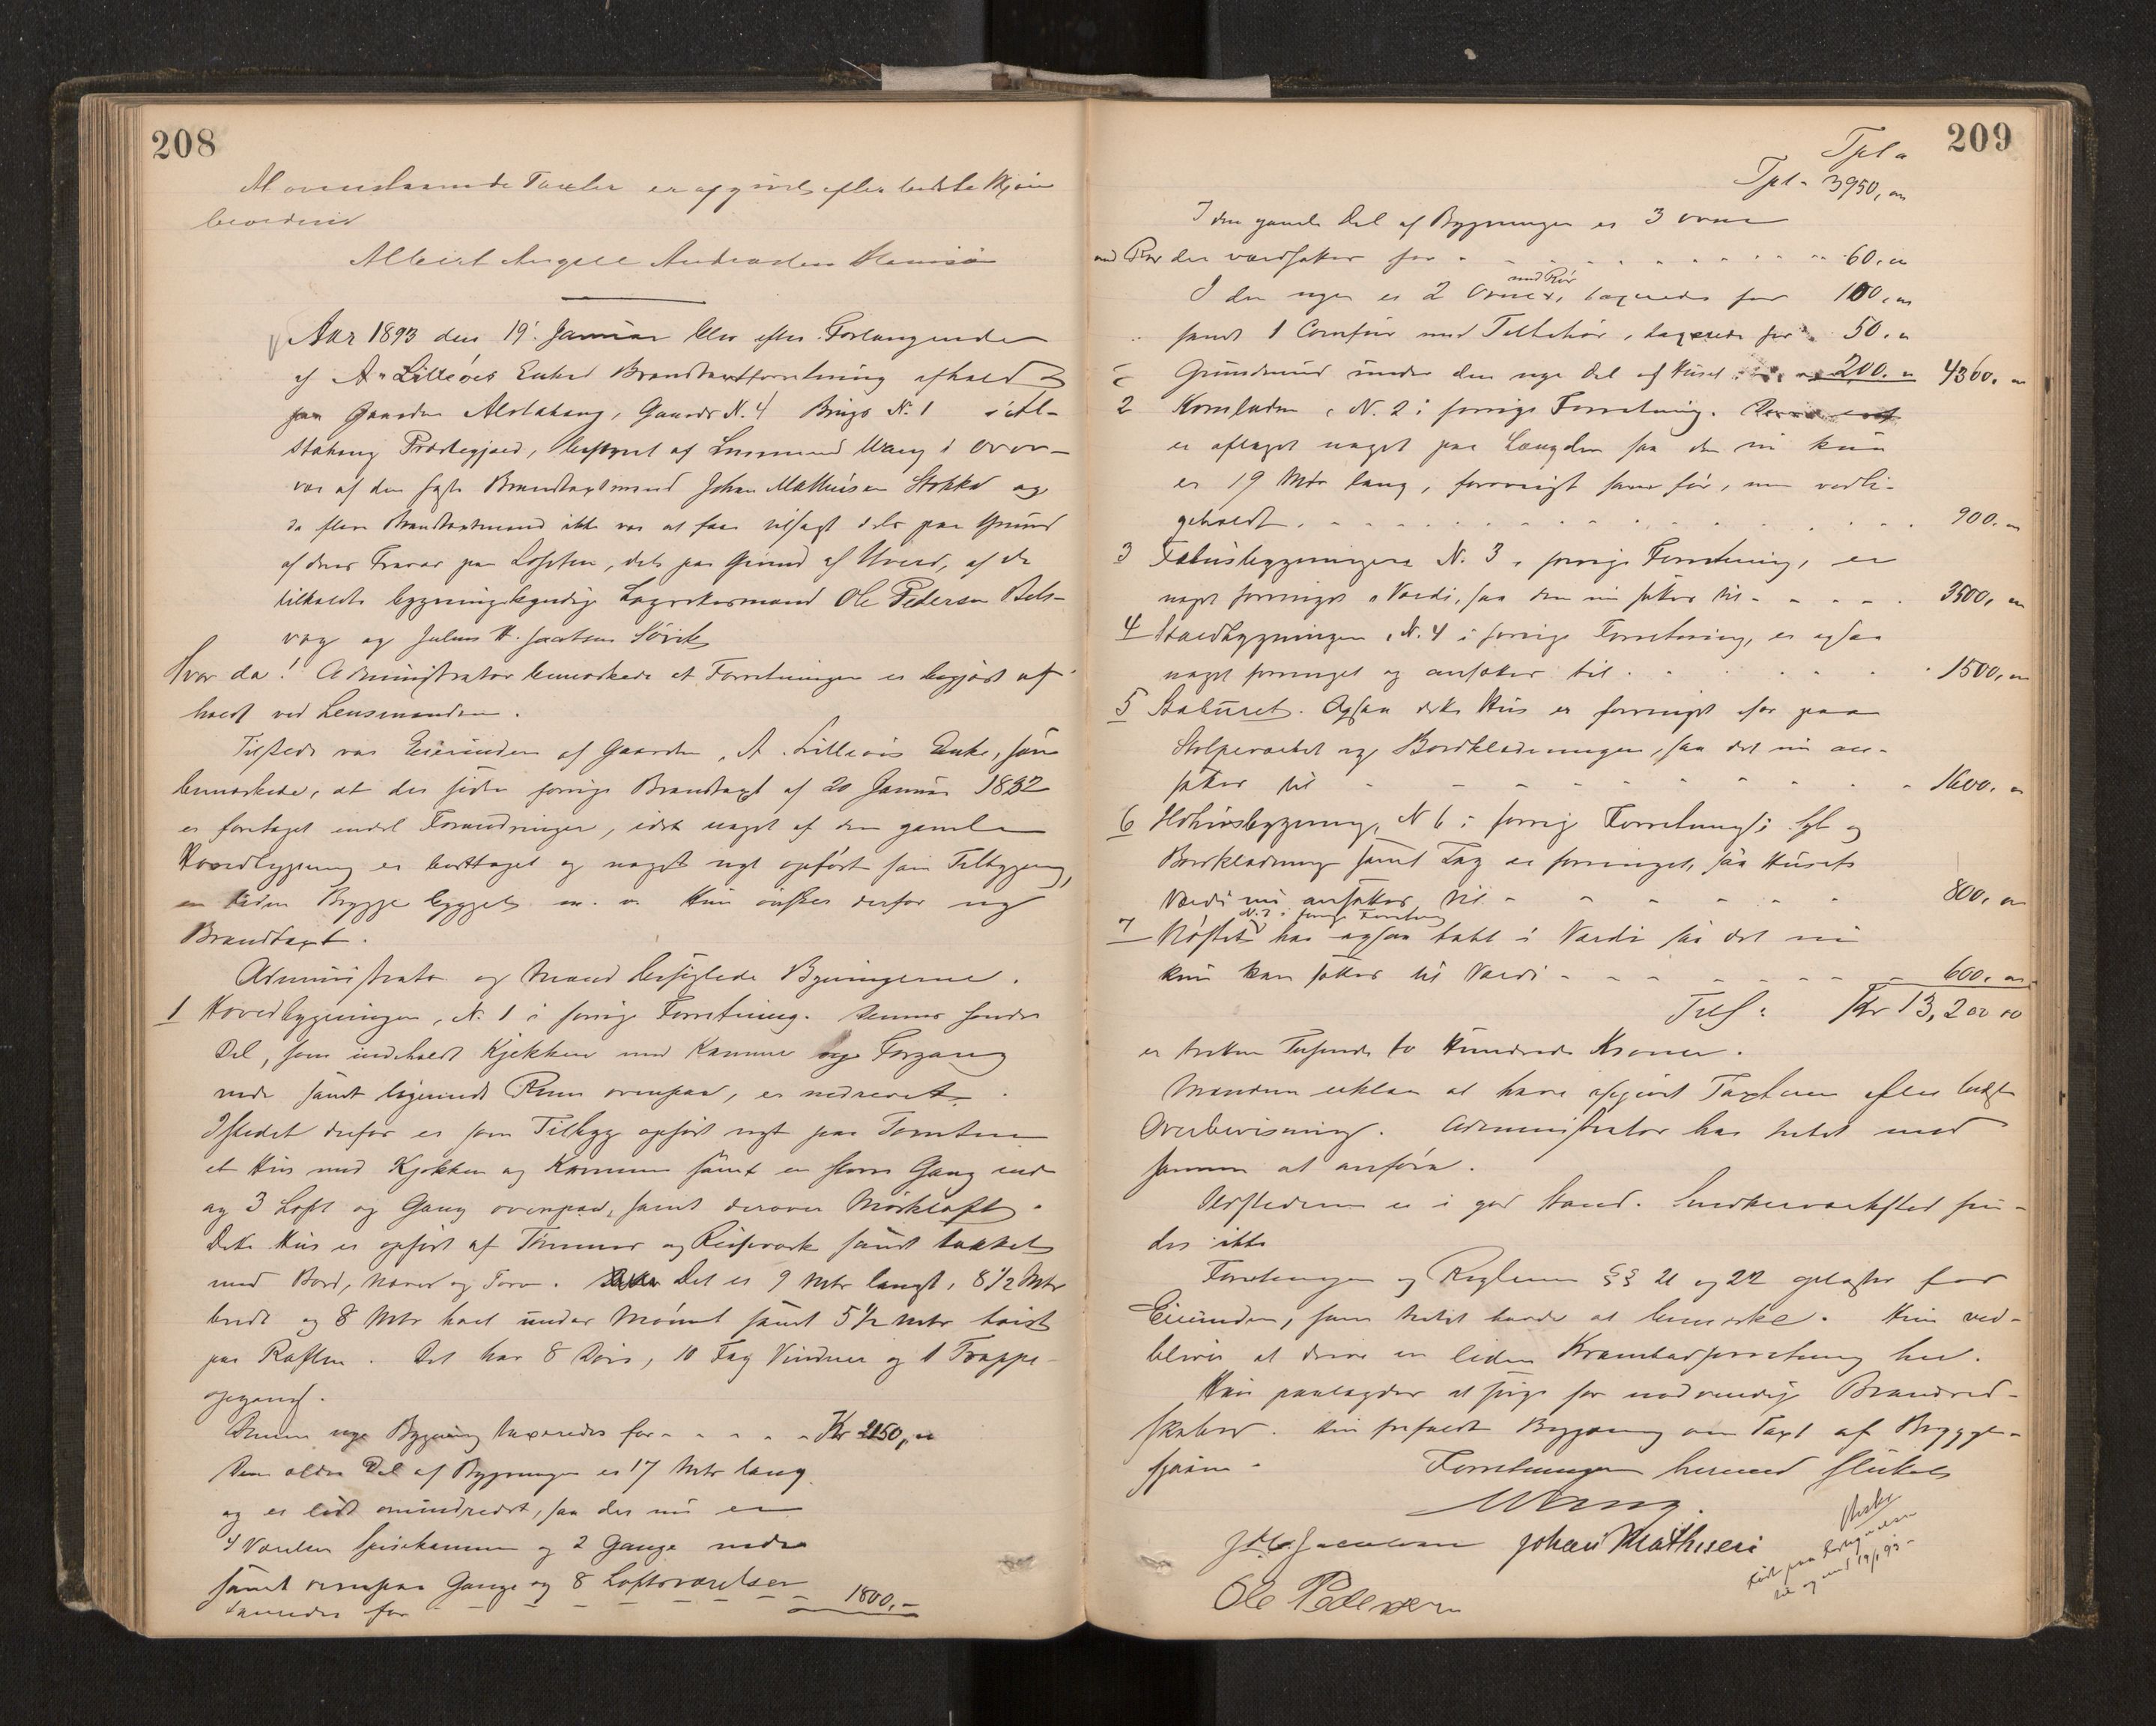 208
Al ovenstaaende Taxter er afgivet efter bedste Skjøn
bevidnes
Albert Angell Andreassen
Aar 1893 den 19' Januar blev efter Forlangende
af A. Lilleøes Enke Brandtaxtforretning afholdt
paa Gaarden Alstahaug, Gaards N. 4 Brugs N. 1 i Al-
stahaug Præstegjæld, bestyret af Lensmand Wang i Overvær
af den faste Brandtaxtmand Johan Mathisen Stokke og
da flere Brandtaxtmænd ikke var at faae tilsagt dels paa Grund
af deres Fravær paa Lofoten, dels paa Grund af Uveir, af de
tilkaldte bygningskyndige Lagrettesmænd Ole Pedersen Bels-
våg og Julius H. Jacobsen Søvik
Hvor da! Administrator bemærkede at Forretningen er begjært af-
holdt ved Lensmanden.
Tilstede var Eierinden af Gaarden, A. Lilleøes Enke, som
bemærkede, at der siden forrige Brandtaxt af 20 Januar 1882
er foretaget endel Forandringer, idet noget af den gamle
Hovedbygning er borttaget og noget nyt opført som Tilbygning,
en liden Brygge bygget m. v. Hun ønsker derfor ny
Brandtaxt.
Administrator og Mænd besigtede Bygningerne.
1 Hovedbygningen, N. 1 i forrige Forretning. Dennes søndre
Del, som indeholdt Kjøkken med Kammer og Forgang
nede samt lignende Rum ovenpaa, er nedrevet.
Istedet derfor er som Tilbyg opført nyt paa Tomten
et Hus med Kjøkken og Kammer samt en større Gang nede
og 3 Loft og Gang ovenpaa, samt derover Mørkeloft.
Dette Hus er opført af Tømmer og Reisverk samt tækket
med Bord, Næver og Torv. Det er 9 Mtr langt, 8 1/2 Mtr
bredt og 8 Mtr høit under Mønet samt 5 1/2 Mtr høit
paa Raften. Det har 8 Døre, 10 Fag Vinduer og 1 Trappe-
opgang.
Denne nye Bygning taxeredes for - - - - - Kr 2150,
Den ældre Del af Bygningen er 17 Mtr lang
og er lidt omindredet, saa der nu er
4 Værelser Spisekammer og 2 Gange nede
samt ovenpaa Gange og 8 Loftsværelser
taxeredes for - - - - - - - 1800.-
209
Tpt
Tpt - 3950,
I den gamle Del af Bygningen er 3 ovne
med Rør der værdsættes for - - - - - 60.
I den nye er 2 Ovne med Rør, taxeredes for 100,
samt 1 Comfur med Tilbehør, taxerede for 50.
Grundmur under den nye Del af Huset 200. 4360.
2 Kornladen, N. 2 i forrige Forretning.
er aftaget noget paa Længden saa den nu kun
er 19 Mtr lang, forøvrigt som før, men vedli-
geholdt. - - - - - 900.
3 Fæhusbygningen N. 3 i forrige Forretning, er
noget forringet i Værdi, saa den nu sættes til - - - - 3500,
4 Staldbygningen, N. 4 i forrige Forretning, er ogsaa
noget forringet og ansættes til - - - 1500,
5 Staburet. Ogsaa dette Hus er forringet især paa
Stolpeværket og Bordklædningen, saa det nu an-
sættes til - - - - - 1600.
6 bygning, N 6 i forrige Forretning;
Bordklædning samt Tag er forringet, saa Husets
Værdi nu ansættes til - - - - - 800,
7 Nøstet N. 7 i forrige Forretning har ogsaa tabt i Værdi saa det nu
kun kan sættes til Værdi - - - - - 600,
Tils: Kr 13,200 00
er tretten Tusende to Hundrede Kroner.
Mændene erklære at have afgivet Taxterne efter bedste
Overbevisning. Administrator har Intet mod
samme at anføre.
Ildstederne er i god Stand. Snedkerværksted fin-
des ikke
Forretningen og Reglerne §§ 21 og 22 oplæstes for
Eierinden, som Intet havde at bemærke. Hun ved-
bliver at drive en liden Krambodforretning her.
Hun paalagdes at sørge for nødvendige Brandred-
skaber. Hun frafaldt Begjæring om Taxt af Brygge-
sjaaen. Forretningen hermed sluttet
Wang.
J. H. Jacobsen Johan Mathisen
Ole Pedersen
19/1 93 -